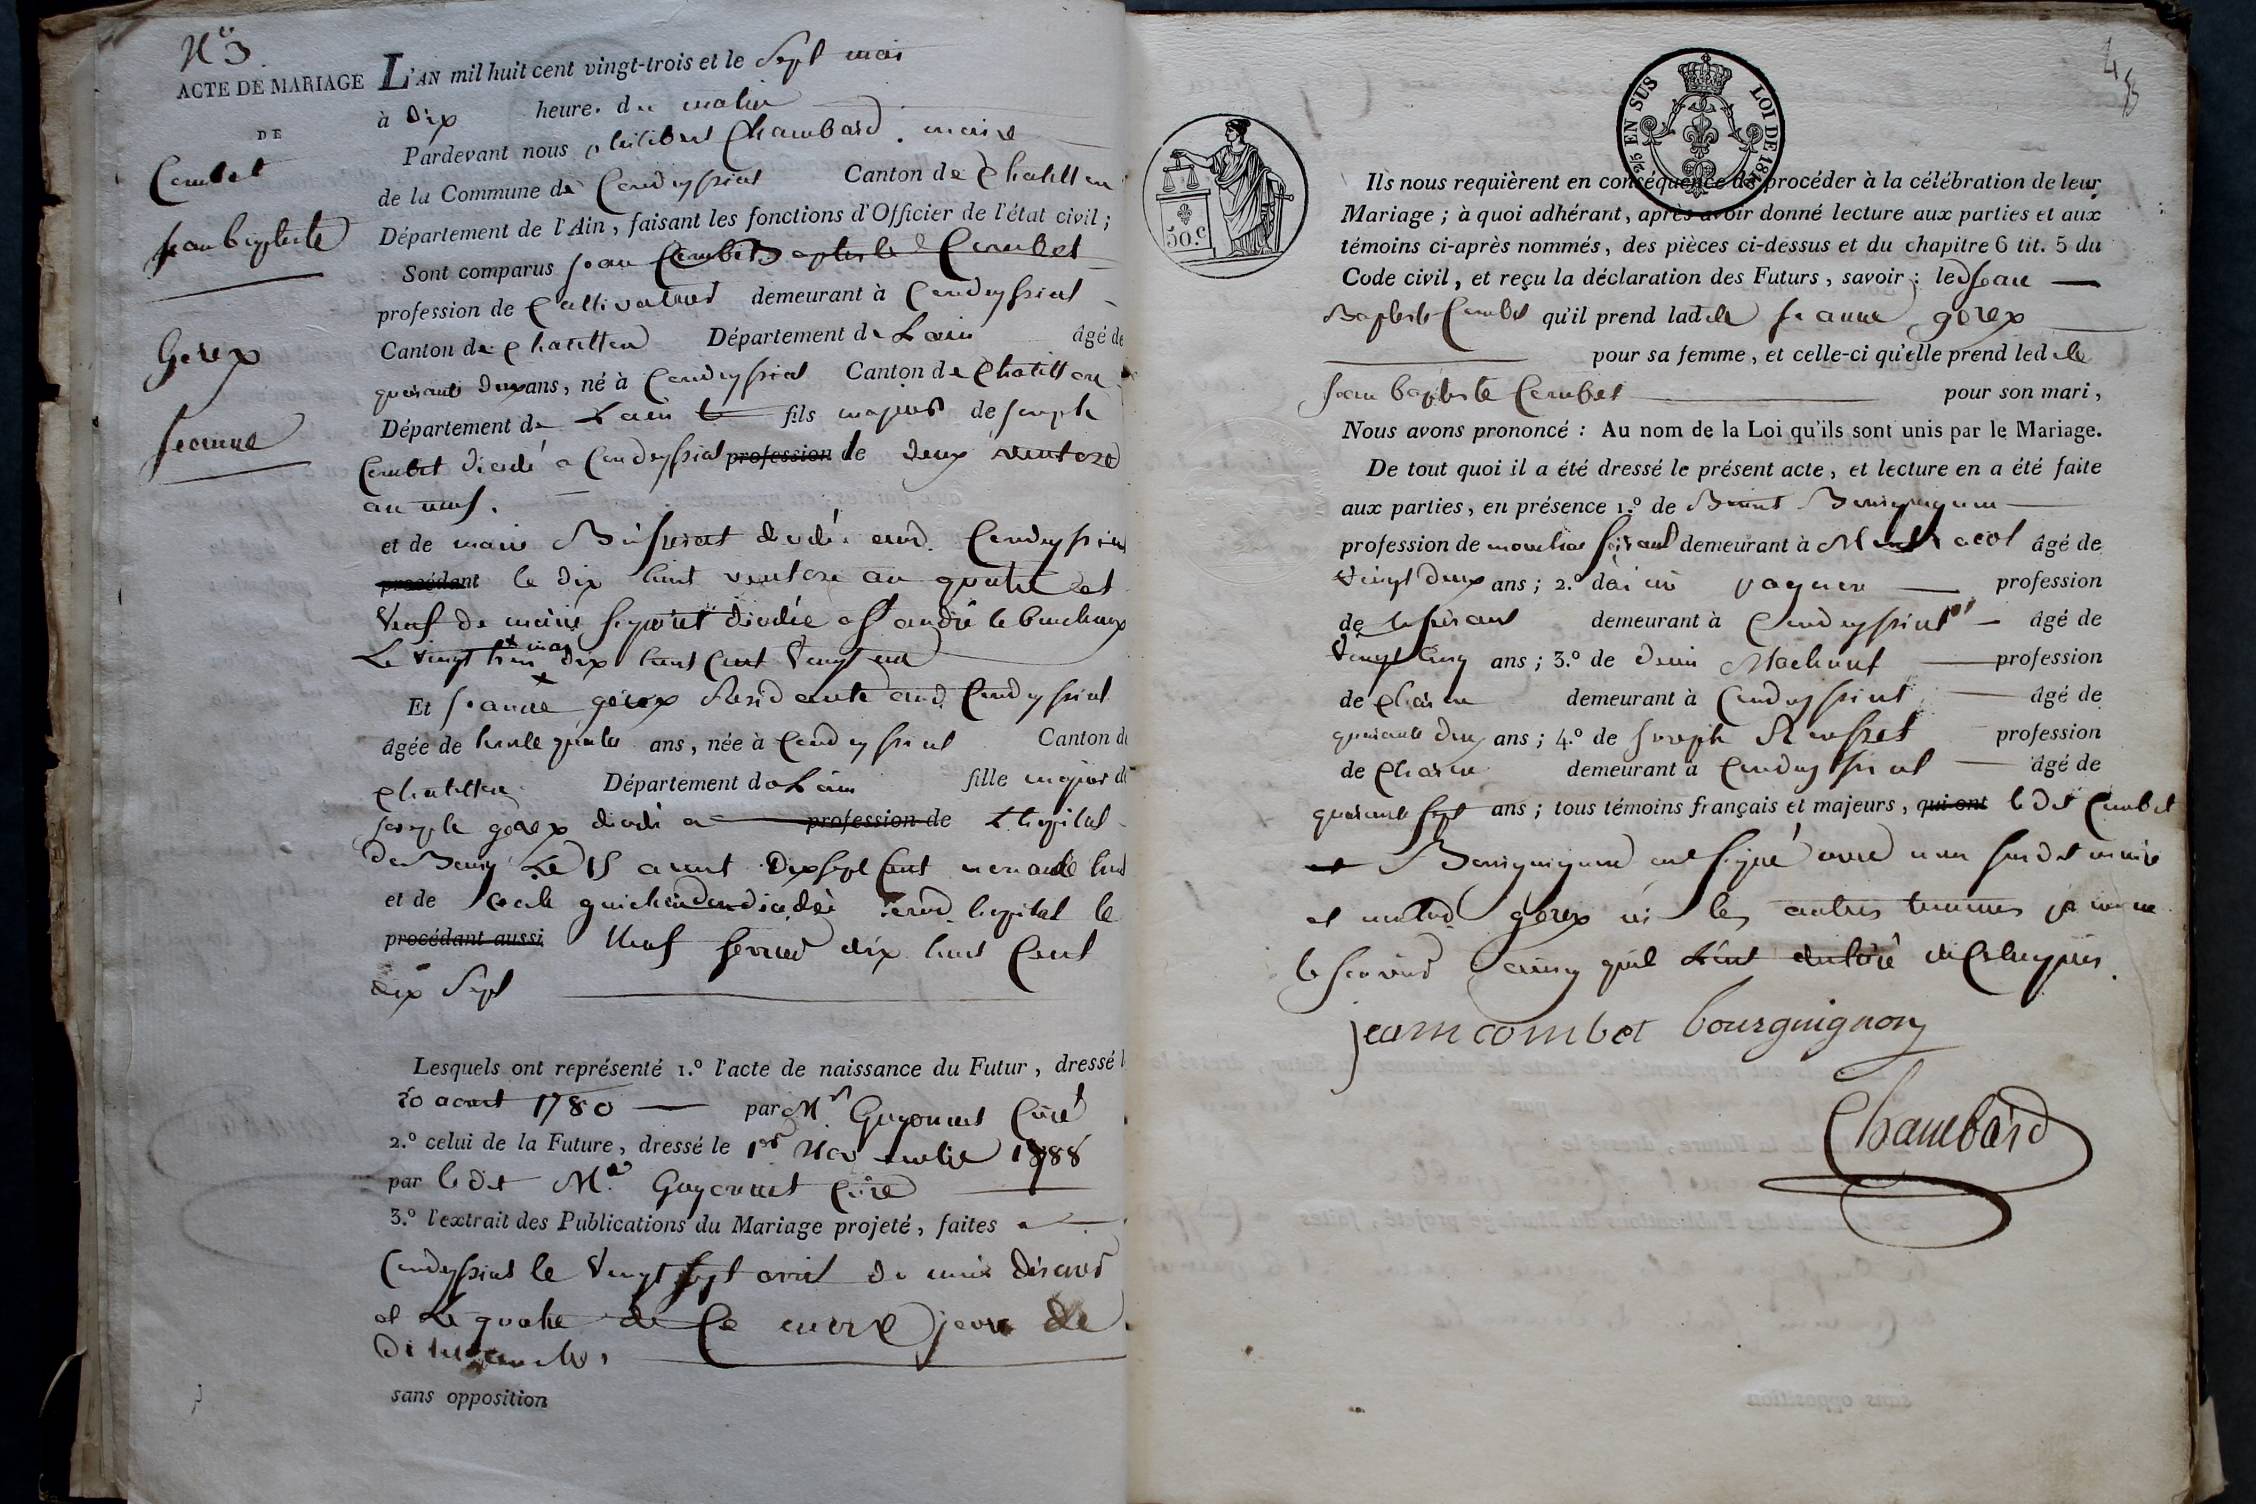 N° 3.
ACTE DE MARIAGE
DE
Combet
jean baptiste
Gorex
jeanne
L'AN mil huit cent vingt-trois et le Sept mai
à dix heure. du matin
Pardevant nous philibert Chambard maire
de la Commune de Condeyssiat Canton de Chatillon
Département de l'Ain, faisant les fonctions d'Officier de l'état civil;
Sont comparus jean Combet Baptiste Combet
profession de Cultivateur demeurant à Condeyssiat
Canton de Chatillon Département de Lain âgé de
quarante deux ans, né à Condeyssiat Canton de Chatillon
Département de Lain fils majeur de joseph
Combet dicédé a Condeyssiat profession de le deux ventose
an neuf.
et de marie décédé aud. Condeyssiat
procédant le dix huit ventose an quatre et
veuf de marie décédée a St andré le bouchoux
Le vingt trois mai dix huit cent vingt un
Et jeanne gorex Residente aud. Condeyssiat
âgée de trente quatre ans, née à Condeyssiat Canton de
Chatillon Département de Lain fille majeur de
joseph gorex décédé a profession de L'hopital
de Bourg Le 15 avout dix sept Cent nonante huit
et de décédé aud. hopital le
procédant aussi Neuf fevrier dix huit Cent
dix Sept
Lesquels ont représenté 1.° l'acte de naissance du Futur, dressé l
20 aout 1780 par Mr. Guyonnet Curé
2.° celui de la Future, dressé le 1er Novembre 1788
par le dit Mr. Guyonnet Curé
3.° l'extrait des Publications du Mariage projeté, faites a
Condeyssiat le vingt sept avril du mois
et Le quatre de Ce mois jour de
dimanche,
sans opposition
4
2/5 EN SUS
LOI DE 1816
50.c
Ils nous requièrent en conséquence de procéder à la célébration de leur
Mariage; à quoi adhérant, après avoir donné lecture aux parties et aux
témoins ci-après nommés, des pièces ci-dessus et du chapitre 6 tit. 5 du
Code civil, et reçu la déclaration des Futurs, savoir: led jean
Baptiste Combet qu'il prend ladite jeanne gorex
pour sa femme, et celle-ci qu'elle prend led ite
jean baptiste Combet pour son mari,
Nous avons prononcé: Au nom de la Loi qu'ils sont unis par le Mariage.
De tout quoi il a été dressé le présent acte, et lecture en a été faite
aux parties, en présence 1.° de Benoit Bourguignon
profession de demeurant à âgé de
vingt deux ans; 2.° de profession
de demeurant à Condeyssiat âgé de
vingt cinq ans; 3.° de denis profession
de demeurant à Condeyssiat âgé de
quarante deux ans; 4.° de joseph profession
de demeurant à Condeyssiat âgé de
quarante sept ans; tous témoins français et majeurs, qui ont le dit Combet
et Bourguignon ont signé avec nous susdit maire
et non lad. gorex ni les autres temoins
le savoir ainsy quil
jeamcombet bourguignon
Chambard